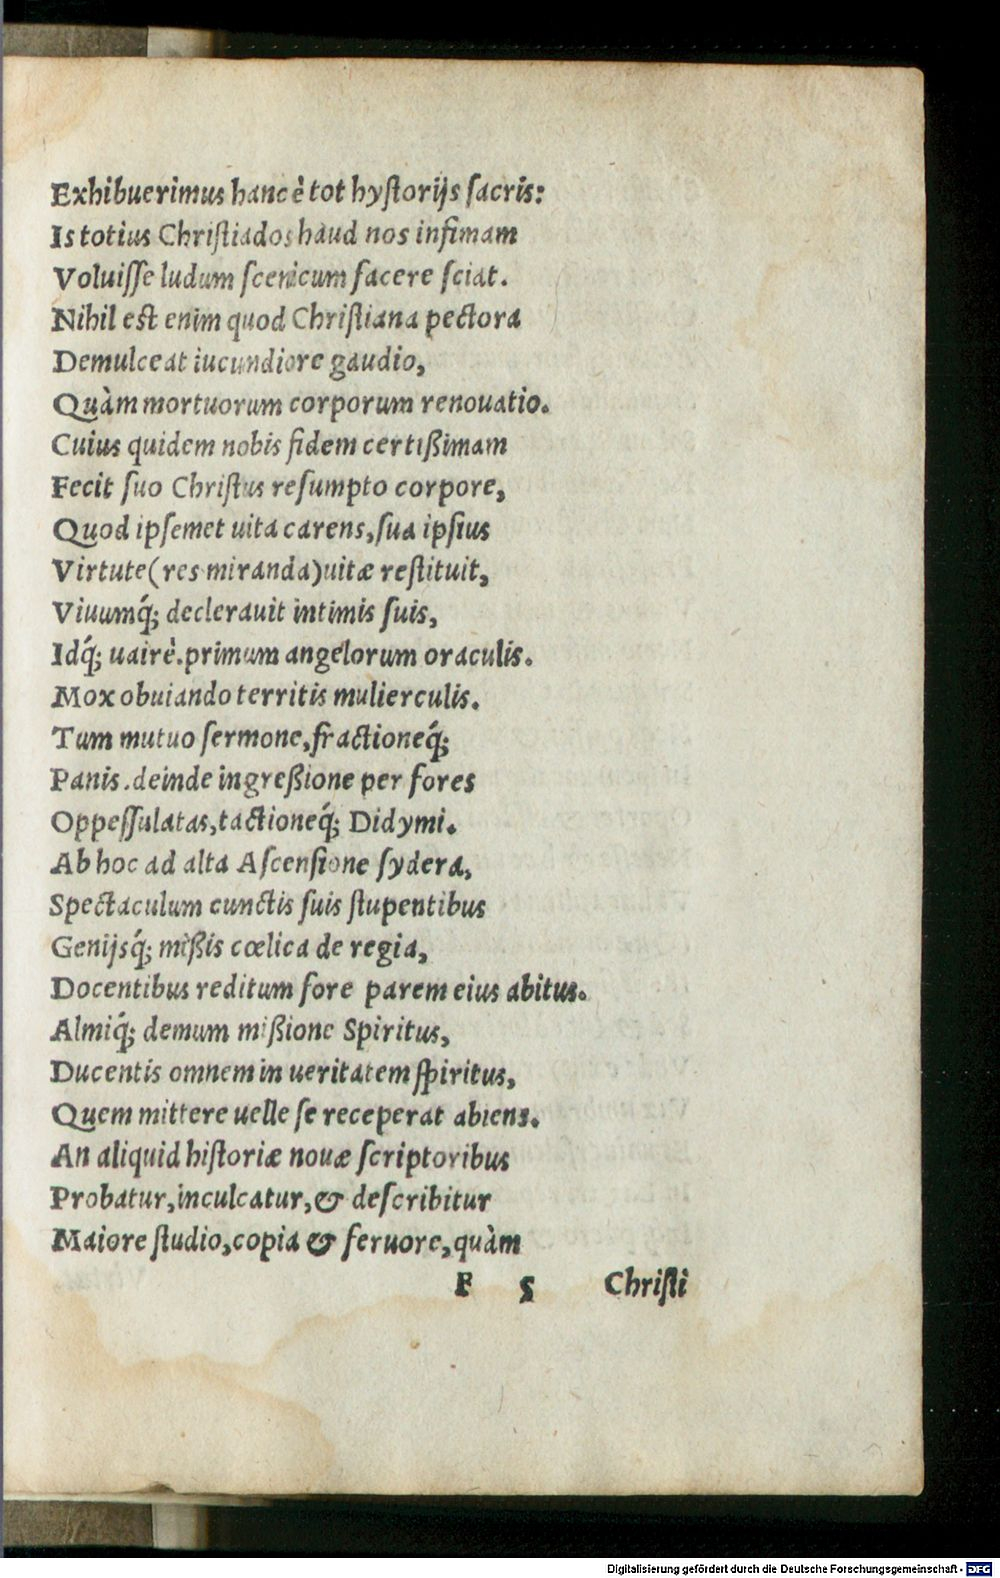 Exhibuerimus hanc è tot hyſtorijs ſacris:
Is totius Chriſtiados haud nos infimam
Voluiſſe ludum ſcenicum facere ſciat.
Nihil est enim quod Chriſtiana pectora
Demulceat iucundiore gaudio,
Quàm mortuorum corporum renouatio.
Cuius quidem nobis fidem certißimam
Fecit ſuo Chriſtus reſumpto corpore,
Quod ipſemet uita carens, ſua ipſius
Virtute (res miranda) uitæ reſtituit,
Viuumq́; declerauit intimis ſuis,
Idq́; uairè. primum angelorum oraculis.
Mox obuiando territis mulierculis.
Tum mutuo ſermone, fractioneq́;
Panis. deinde ingreßione per fores
Oppeſſulatas, tactioneq́; Didymi.
Ab hoc ad alta Aſcenſione ſydera,
Spectaculum cunctis ſuis ſtupentibus
Genijsq́; mißis cœlica de regia,
Docentibus reditum fore parem eius abitus.
Almiq́; demum mißione Spiritus,
Ducentis omnem in ueritatem ſpiritus,
Quem mittere uelle ſe receperat abiens.
An aliquid hiſtoriæ nouæ ſcriptoribus
Probatur, inculcatur, & deſcribitur
Maiore ſtudio, copia & feruore, quàm
F 5 Chriſti
Digitalisierung gefördert durch die Deutsche Forschungsgemeinschaft - DFG